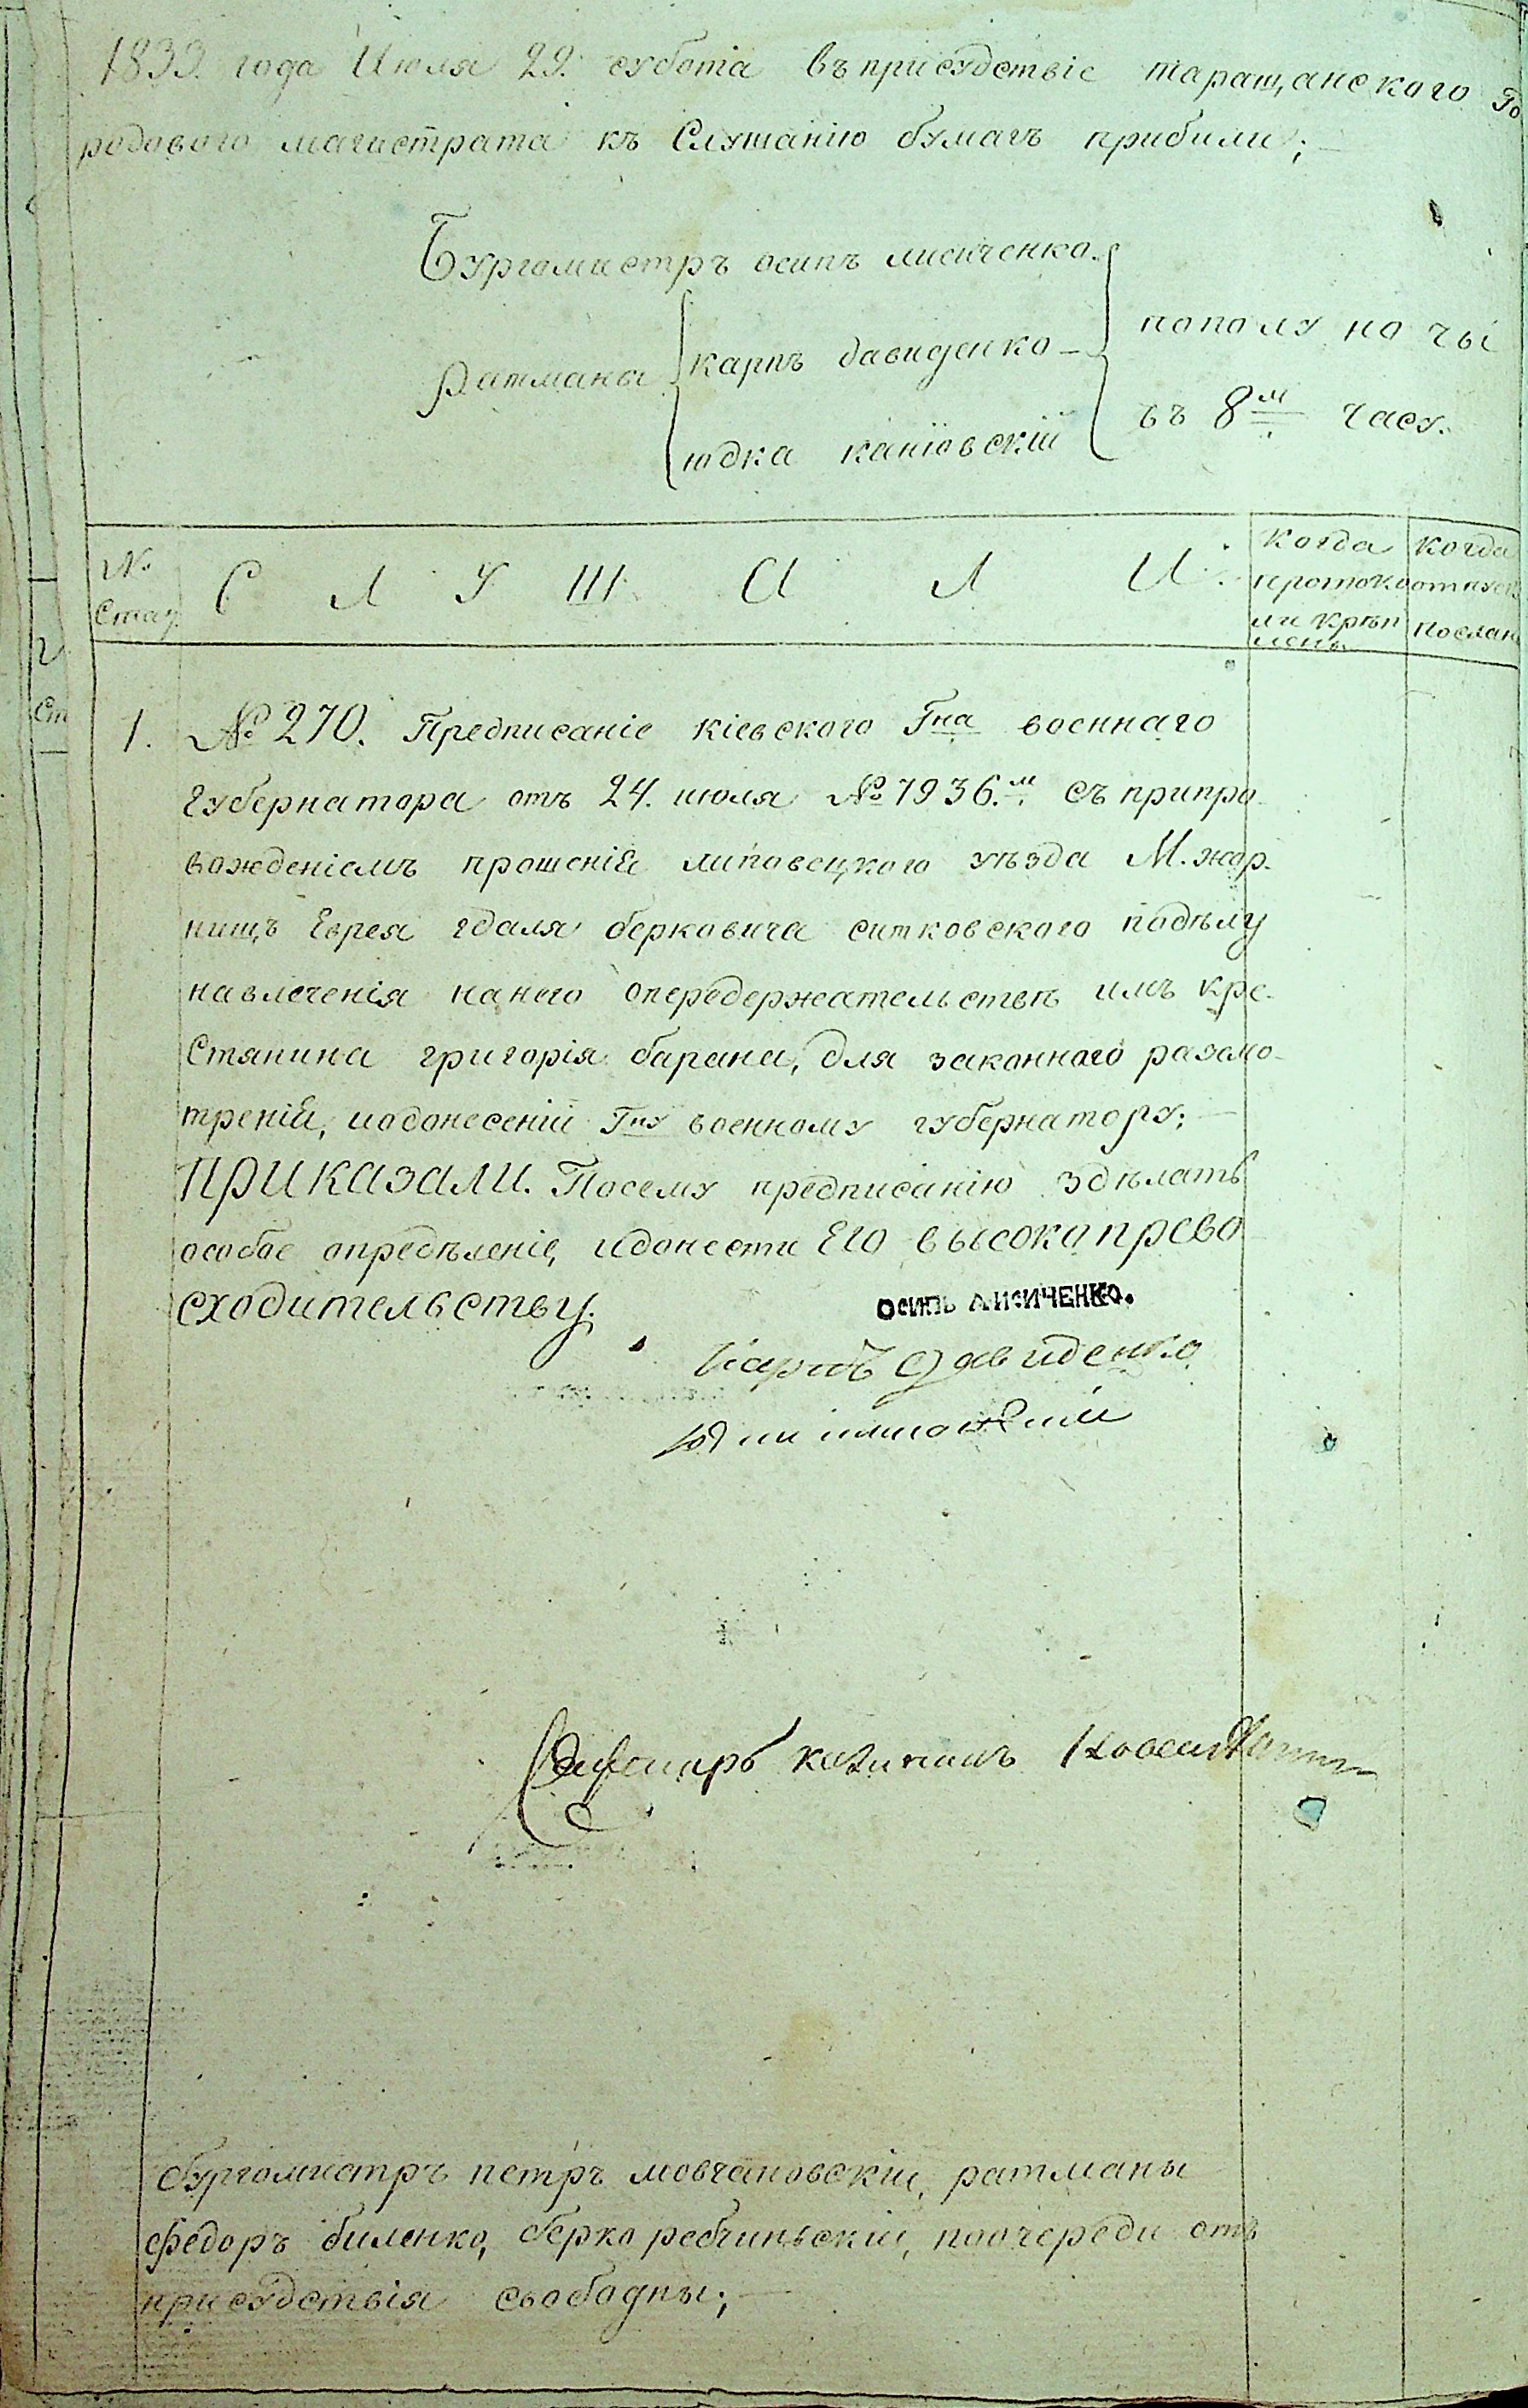 1833. года Июля 29. субота въ присудствіе таращанского Го
родового магистрата къ Слушанію бумагъ прибили;
Бургомистръ осипъ лисиченко.
Ратманы карпъ давиденко
юдка каніовскій
пополу но чы
въ 8м часу.
№ Стат.
С Л У Ш А Л И.
Когда протоко ли крѣп лены
Когда отпуск послан
1. № 270. Предписаніе кіевского Гна военнаго
губернатора отъ 24. июля № 7936.м съ припро
вожденіемъ прошенія липовецкого уѣзда М. жор.
нищъ Еврея гдаля берковича ситковского подѣлу
навлеченія нанего опередержательствѣ имъ кре.
Стянина григорія барана, для законного разсмо
тренія, идонесенія Гну военному губернатору;
ПРИКАЗАЛИ. Посему предписанію здѣлать
особое опредѣленіе, идонести Его высокопрево
сходительству.
осипъ лисиченко.
Карпъ Давиденко
Секретарь
бургомистръ петръ мовчановскій, ратманы
федоръ биленко, берко ребчиньскій, поочереди отъ
присудствія свободны;